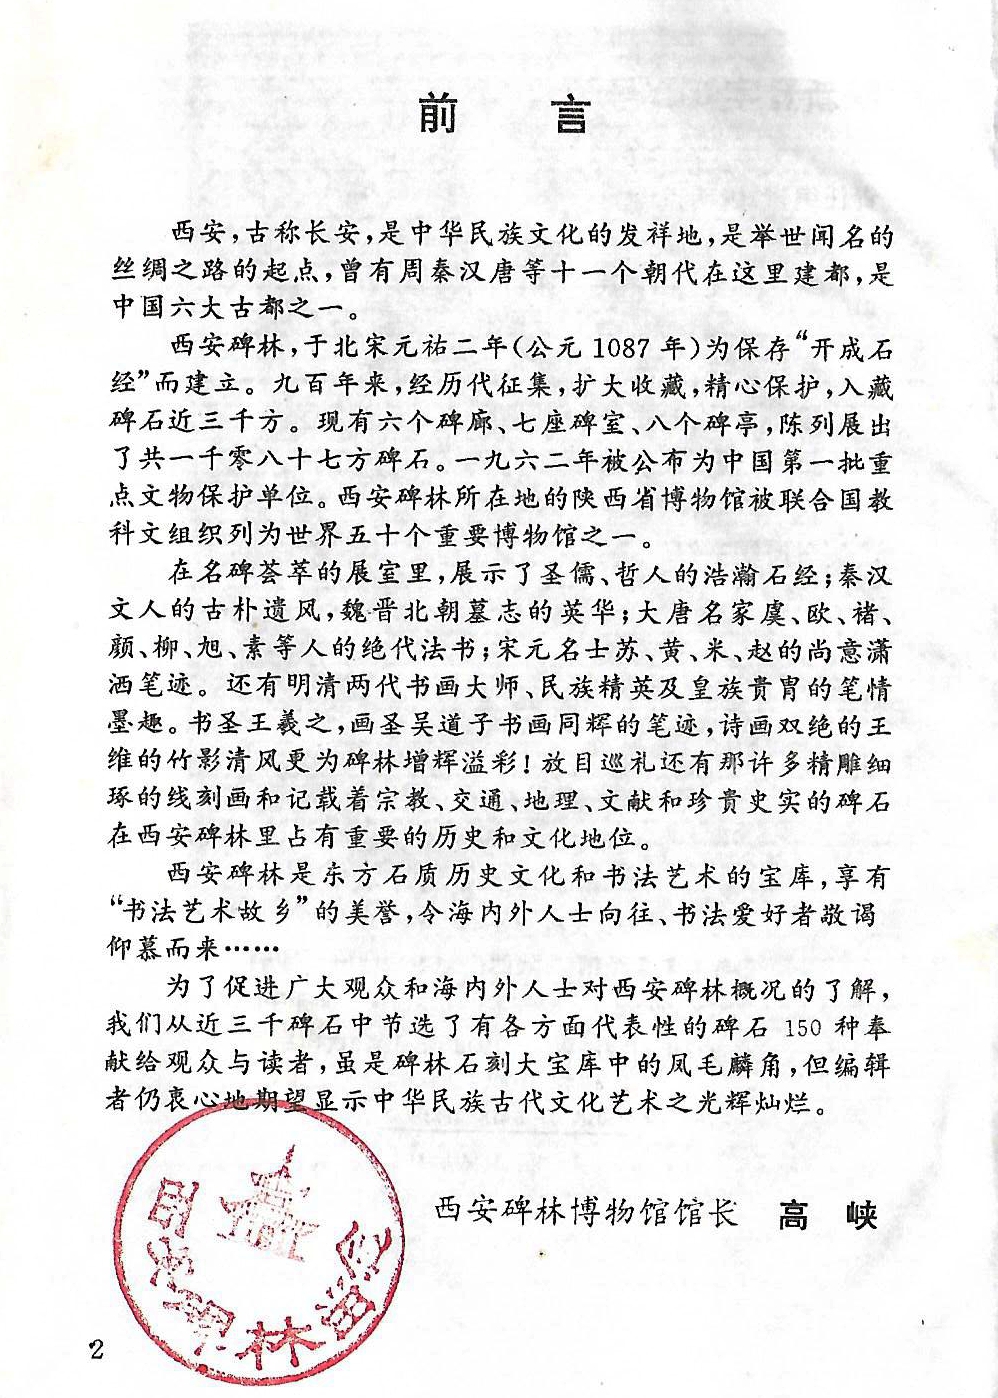 前 言
西安，古称长安，是中华民族文化的发祥地，是举世闻名的
丝绸之路的起点，曾有周秦汉唐等十一个朝代在这里建都，是
中国六大古都之一。
西安碑林，于北宋元祐二年（公元1087年）为保存“开成石
经”而建立。九百年来，经历代征集，扩大收藏，精心保护，入藏
碑石近三千方。现有六个碑廊、七座碑室、八个碑亭，陈列展出
了共一千零八十七方碑石。一九六二年被公布为中国第一批重
点文物保护单位。西安碑林所在地的陕西省博物馆被联合国教
科文组织列为世界五十个重要博物馆之一。
在名碑荟萃的展室里，展示了圣儒、哲人的浩瀚石经；秦汉
文人的古朴遗风，魏晋北朝墓志的英华；大唐名家虞、欧、褚、
颜、柳、旭、素等人的绝代法书；宋元名士苏、黄、米、赵的尚意潇
洒笔迹。还有明清两代书画大师、民族精英及皇族贵胄的笔情
墨趣。书圣王羲之，画圣吴道子书画同辉的笔迹，诗画双绝的王
维的竹影清风更为碑林增辉溢彩！放目巡礼还有那许多精雕细
琢的线刻画和记载着宗教、交通、地理、文献和珍贵史实的碑石
在西安碑林里占有重要的历史和文化地位。
西安碑林是东方石质历史文化和书法艺术的宝库，享有
“书法艺术故乡”的美誉，令海内外人士向往、书法爱好者敬谒
仰慕而来……
为了促进广大观众和海内外人士对西安碑林概况的了解，
我们从近三千碑石中节选了有各方面代表性的碑石150种奉
献给观众与读者，虽是碑林石刻大宝库中的凤毛麟角，但编辑
者仍衷心地期望显示中华民族古代文化艺术之光辉灿烂。
西安碑林博物馆馆长 高 峡
西安碑林留念
2